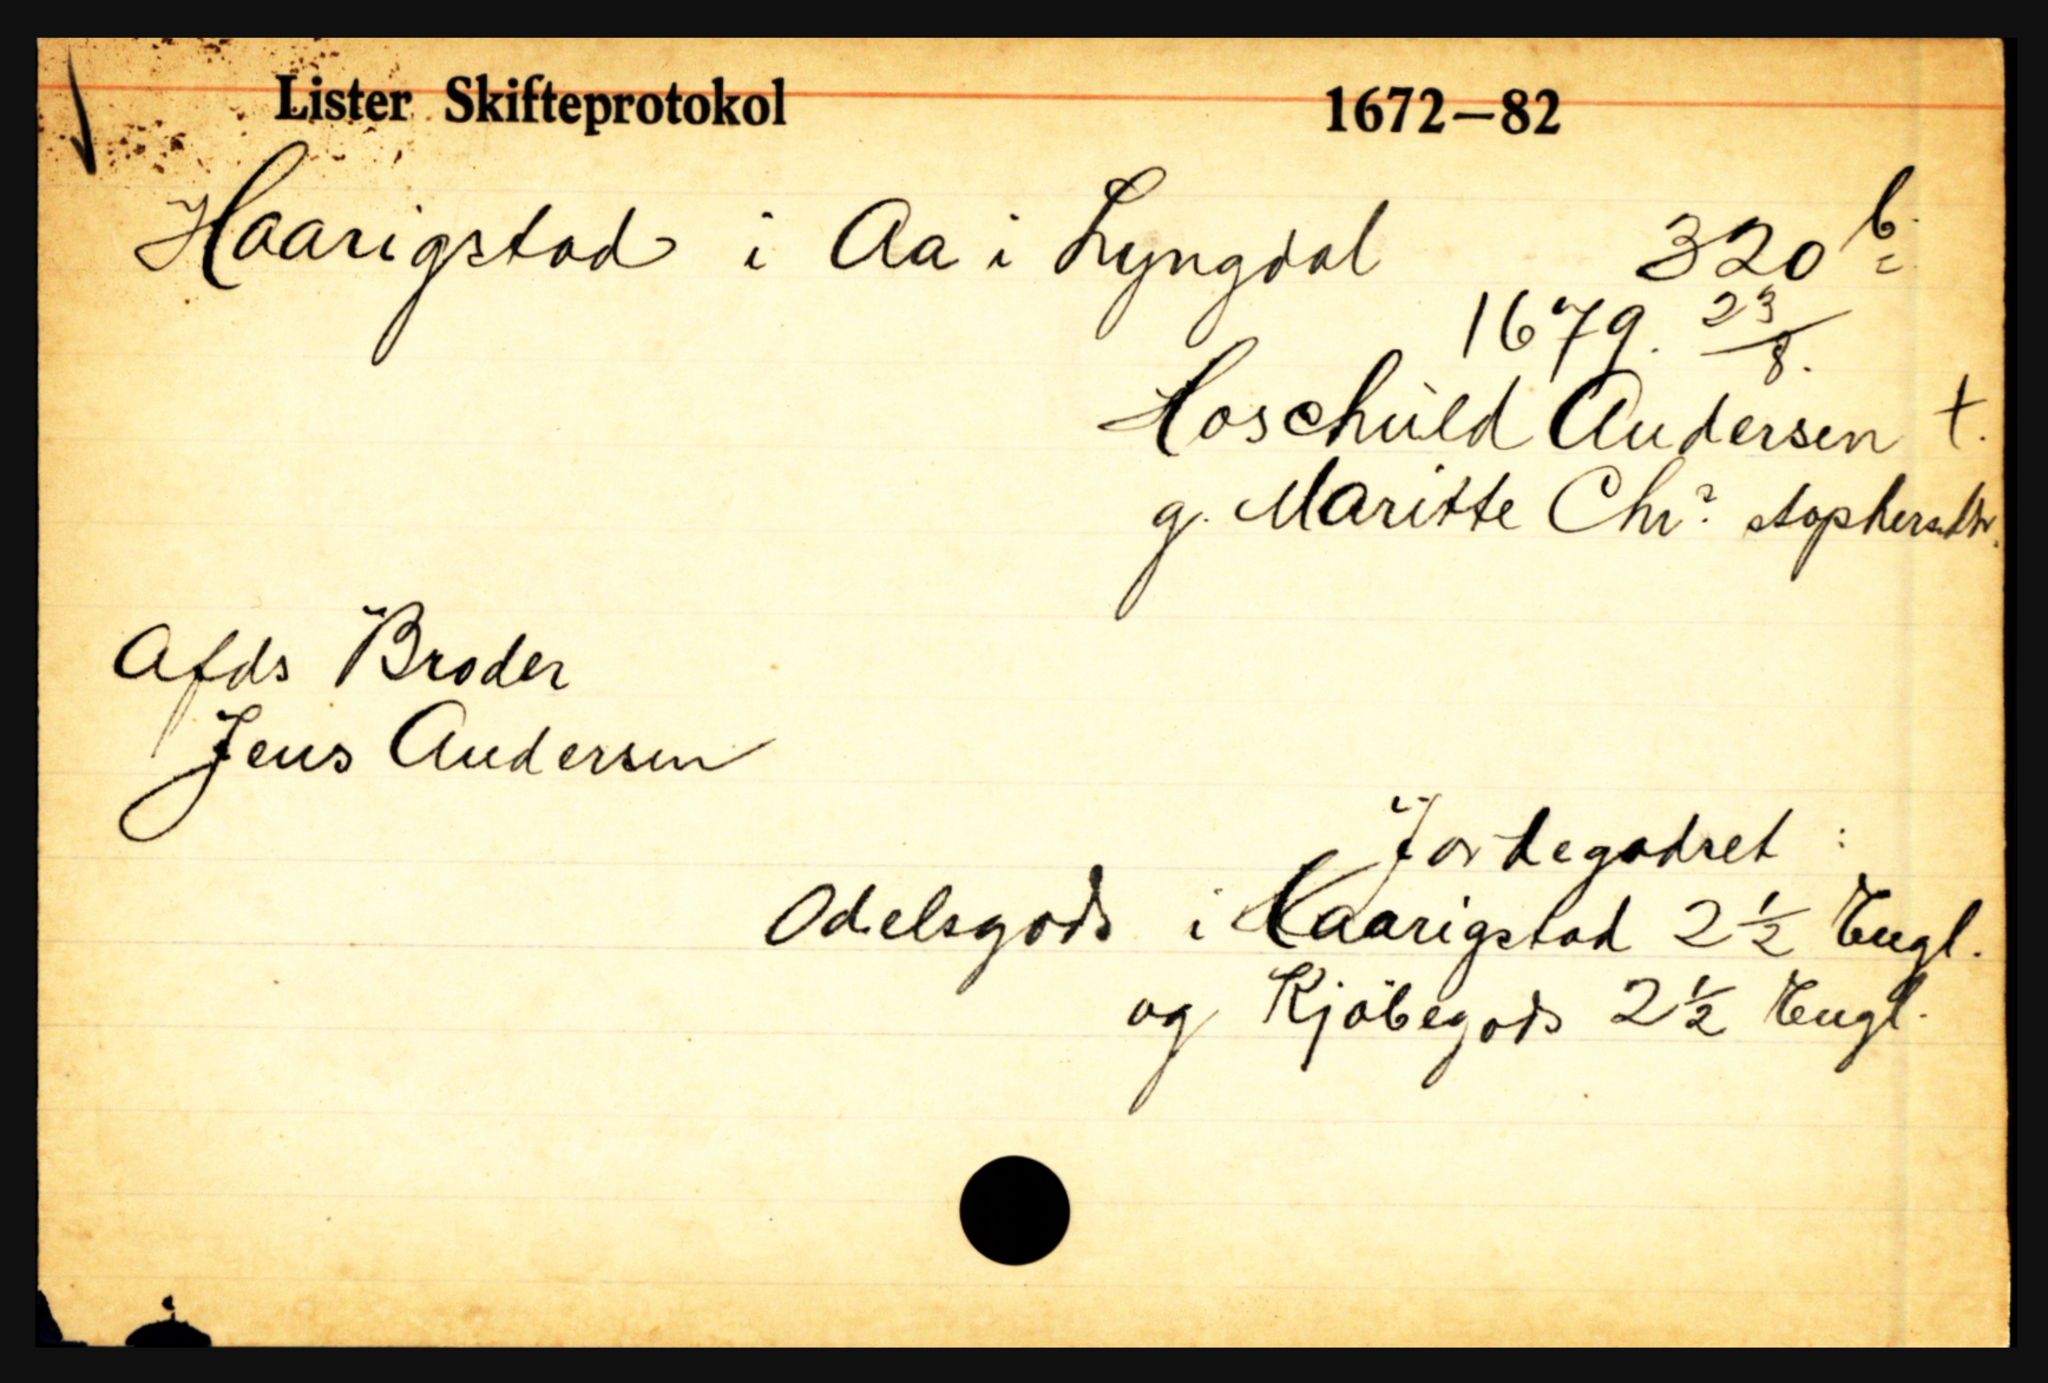 Lister Skifteprotokol 1672–82
Haarigstad i Aa i Lyngdal 320 b.
1679. 23/8.
Hoschuld Andersen †.
g. Maritte Chr? stophersdtr.
Afds Broder
Jens Andersen
Jordegodset :
Odelsgods i Haarigstad 2 1/2 Engl.
og Kjöbegods 2 1/2 Engl.